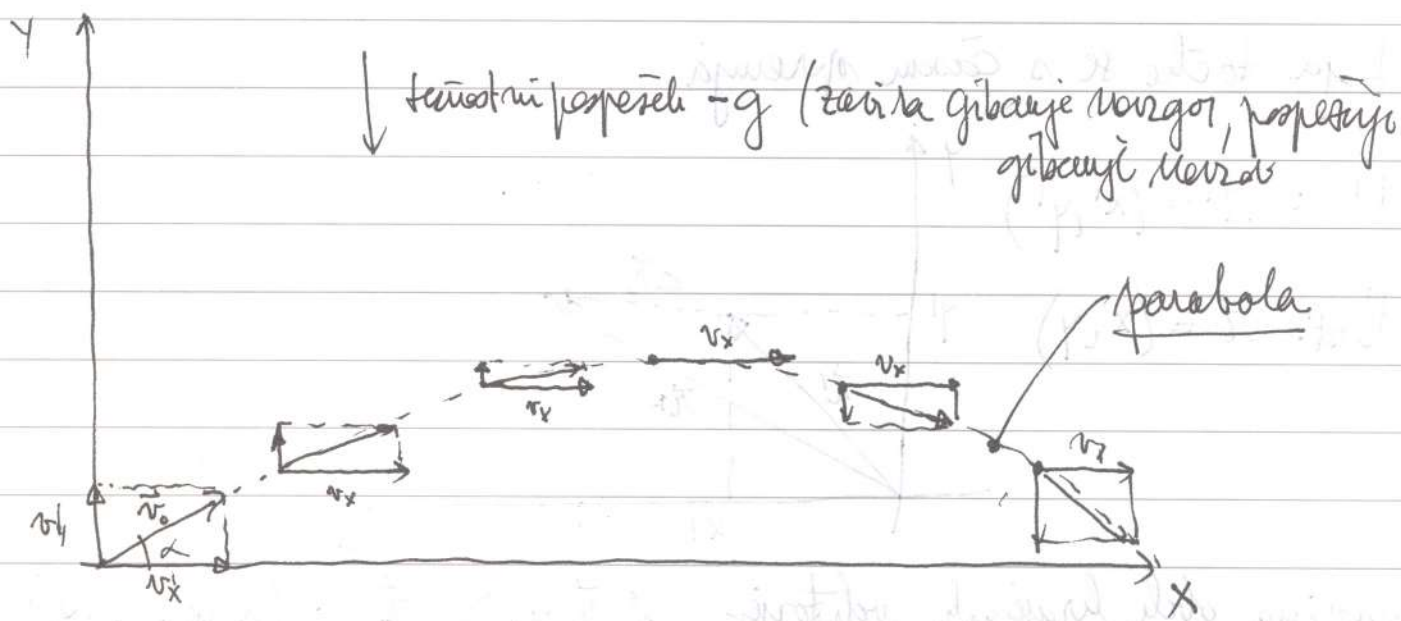 Y
težnostni pospešek -g (zavira gibanje navzgor, pospešuje
gibanje navzdol
parabola
v_x
v_x
v_x
v_x
v_x
v_y
v_0
α
v_x
X